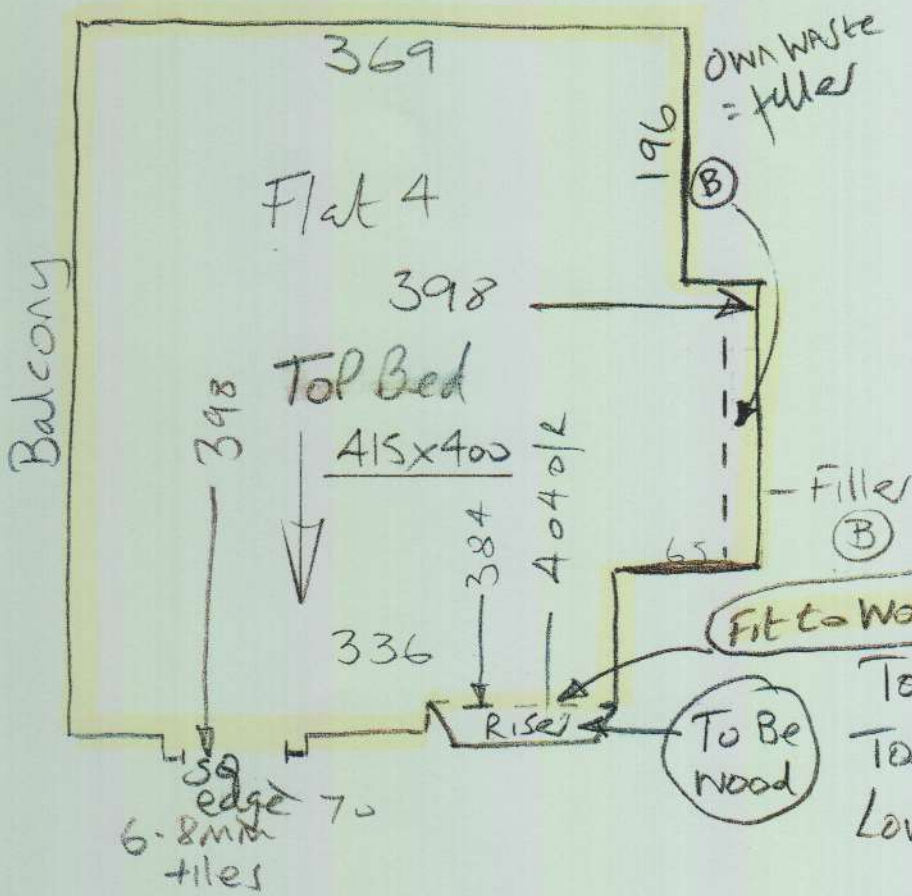 369
OWN WASTE
= filler
196
B
Flat 4
398
Balcony
398
Top Bed
415x400
384
404 O/R
Filler
B
65
336
Fit to Wo
Riser
To Be
Wood
To
To
Lov
SQ
edge 70
6-8mm
tiles